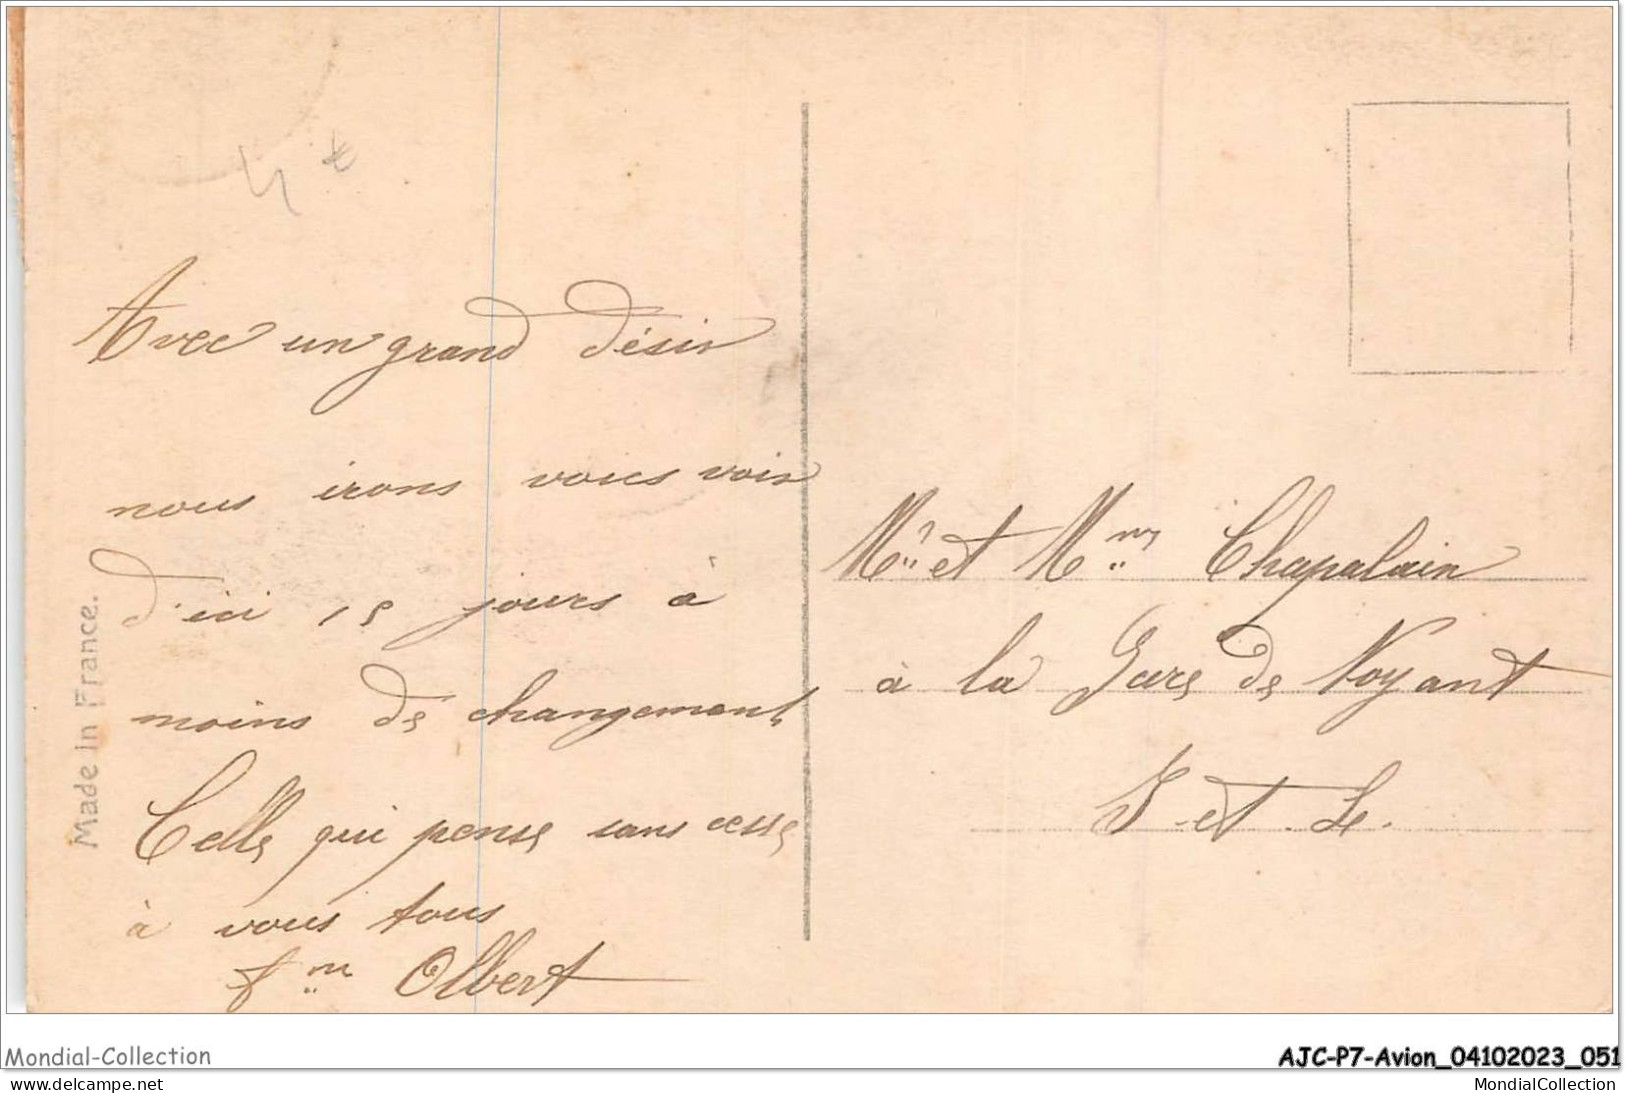 4 €
Avec un grand désir
nous irons vous voir
d'ici 15 jours à
moins de changement
Celle qui pense sans cesse
à vous tous
fme Olbert
Made in France.
Mr et Mme Chapalain
à la Gare de Noyant
I et L.
Mondial-Collection
AJC-P7-Avion_04102023_051
www.delcampe.net
MondialCollection